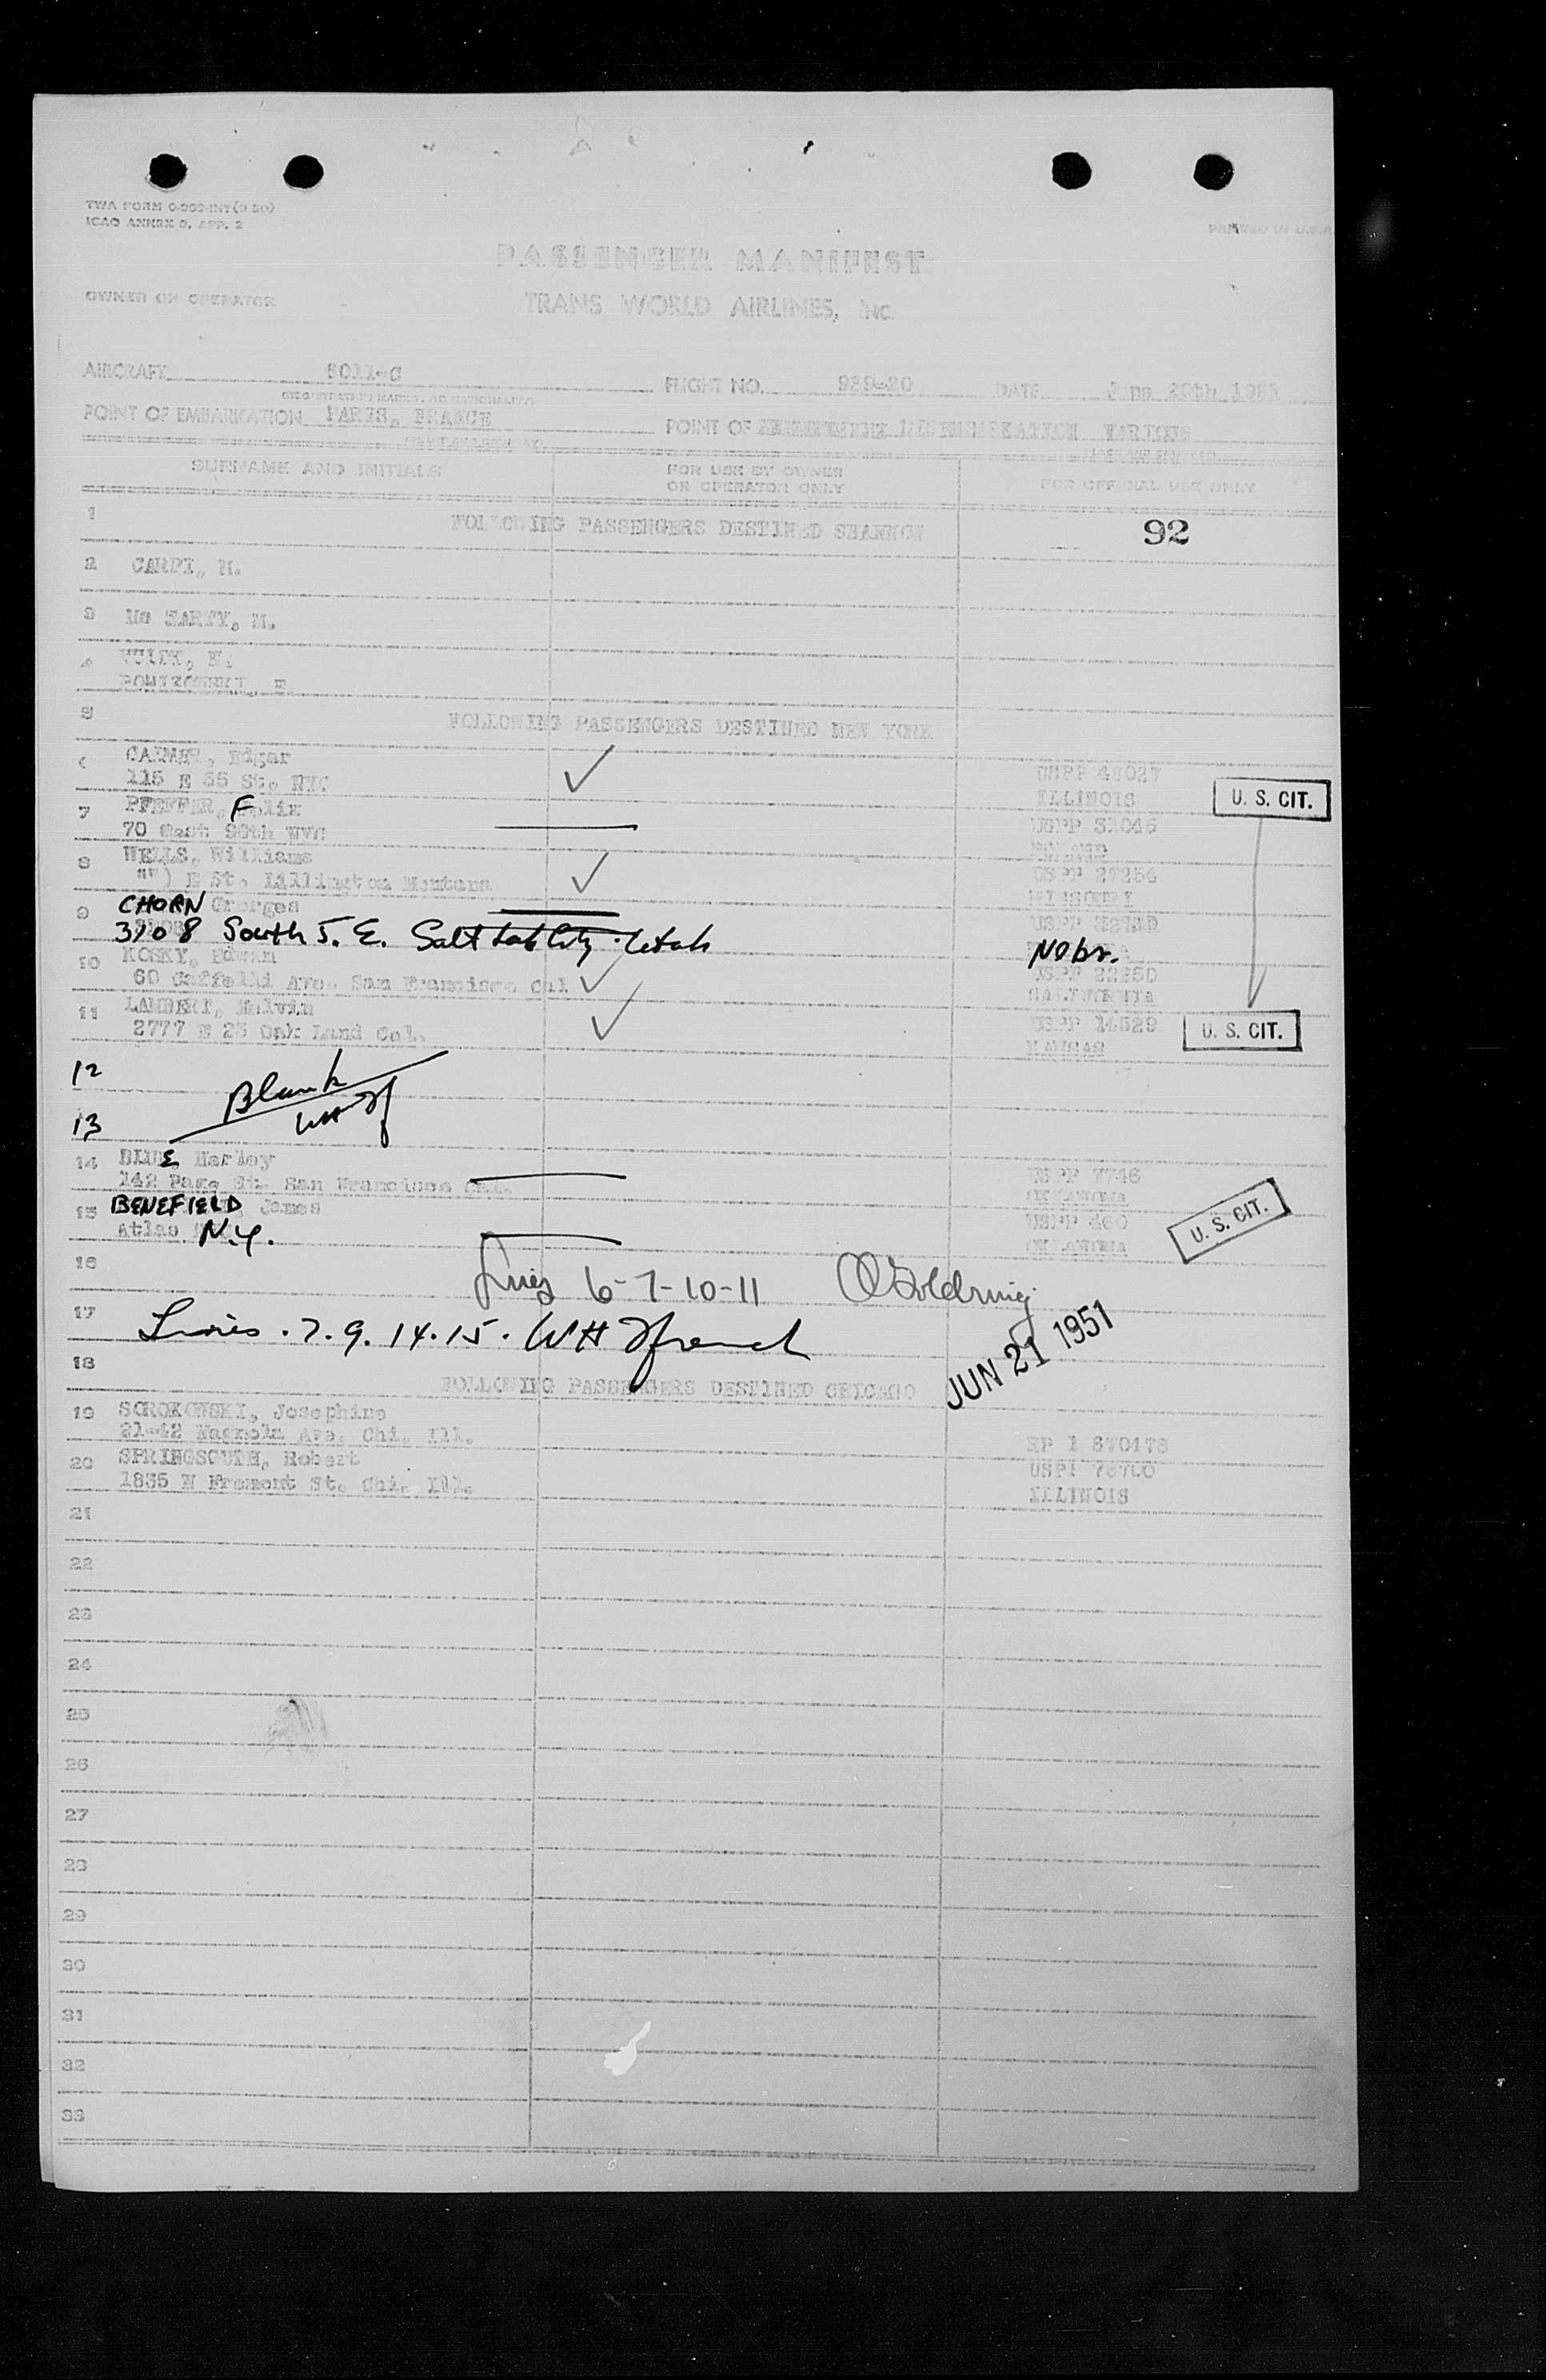 TWA FORM
ICAO ANNEX 9, APP. 2
PRINTED IN U.S.A.
PASSENGER MANIFEST
OWNER OR OPERATOR TRANS WORLD AIRLINES, INC.
AIRCRAFT 6011-C FLIGHT NO. 939-20 DATE June 20th 1951
POINT OF EMBARKATION PARIS, FRANCE POINT OF DISEMBARKATION VARIOUS
SURNAME AND INITIALS FOR USE BY OWNER OR OPERATOR ONLY FOR OFFICIAL USE ONLY
1 FOLLOWING PASSENGERS DESTINED SHANNON 92
2 CARPI, M.
3 Mc
4
5 FOLLOWING PASSENGERS DESTINED NEW YORK
6 CALMER, Edgar USPP 48027
115 E 55 St. NYC ILLINOIS U. S. CIT.
7 PFEFFER, Felix USPP
70 East 96th NYC
8 WELLS, Williams USPP 27254
E St. Lillington Montana MISSOURI
9 CHORN Georges USPP
3708 South 5. E. Salt Lake City. Utah Nebr.
10 KOSKY, Edwin USPP 22250
60 Ave. San Francisco Cal CALIFORNIA
11 LAMBERT, Melvin USPP 14529 U. S. CIT.
2777 E 23 Oak Land Cal. KANSAS
12
Blank
13 WHF
14 BLUE, Harley USPP 7746
142 Page St. San Francisco Cal. OKLAHOMA
15 BENEFIELD, James USPP 460 U. S. CIT.
Atlas N.Y. OKLAHOMA
16 Lines 6-7-10-11 Goldring
17 Lines . 7. 9. 14. 15. WH French JUN 21 1951
18 FOLLOWING PASSENGERS DESTINED CHICAGO
19 SOROKOWSKI, Josephine
21-42 Magnolia Ave. Chi. Ill. RP 1 870478
20 SPRINGSGUTH, Robert USPP 78700
1835 N Fremont St. Chi. Ill. ILLINOIS
21
22
23
24
25
26
27
28
29
30
31
32
33